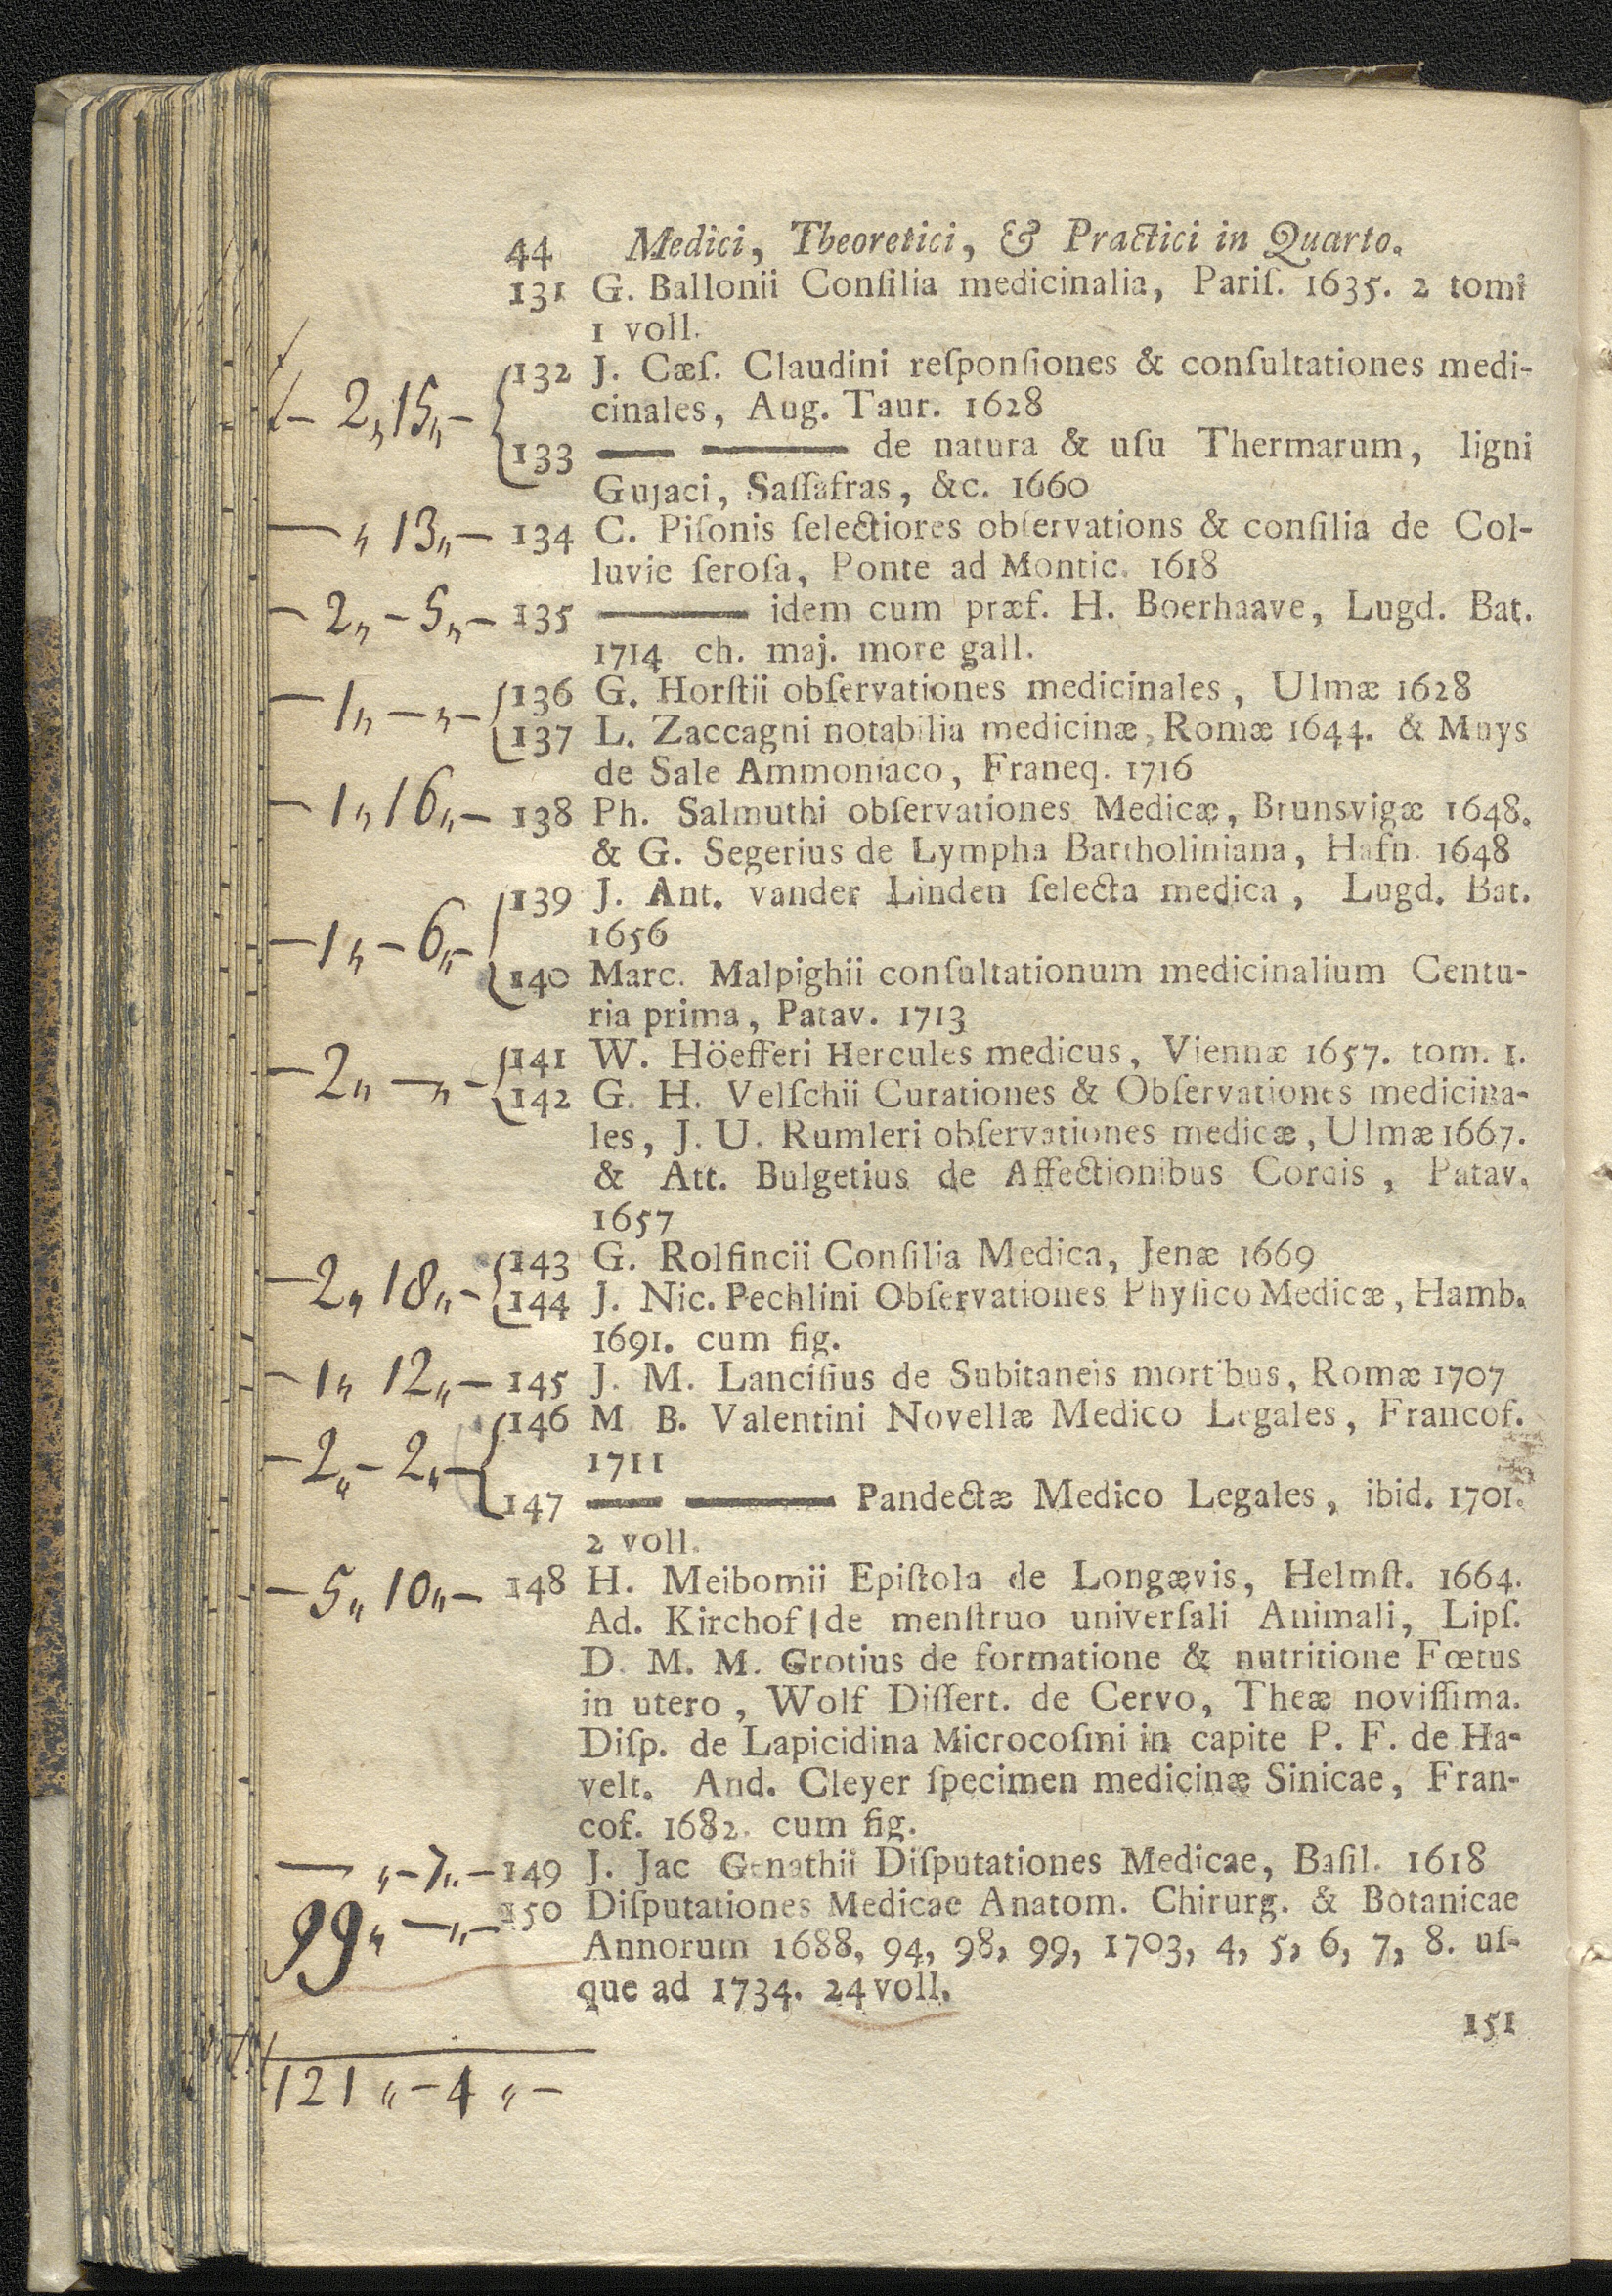 44 Medici, Theoretici, & Practici in Quarto.
131 G. Ballonii Conſilia medicinalia, Pariſ. 1635. 2 tomi
1 voll.
132 J. Cæſ. Claudini reſponſiones & conſultationes medi-
cinales, Aug. Taur. 1628
— 2,, 15,, —
133 —— —— de natura & uſu Thermarum, ligni
Gujaci, Saſſafras, &c. 1660
— ,, 13,, — 134 C. Piſonis ſelectiores obſervations & conſilia de Col-
luvie ſeroſa, Ponte ad Montic. 1618
— 2,, — 5,, — 135 —— idem cum præf. H. Boerhaave, Lugd. Bat.
1714 ch. maj. more gall.
136 G. Horſtii obſervationes medicinales, Ulmæ 1628
— 1,, — ,, —
137 L. Zaccagni notabilia medicinæ, Romæ 1644. & Muys
de Sale Ammoniaco, Franeq. 1716
— 1,, 16,, — 138 Ph. Salmuthi obſervationes Medicæ, Brunsvigæ 1648.
& G. Segerius de Lympha Bartholiniana, Hafn. 1648
139 J. Ant. vander Linden ſelecta medica, Lugd. Bat.
— 1,, — 6,, — 1656
140 Marc. Malpighii conſultationum medicinalium Centu-
ria prima, Patav. 1713
141 W. Höefferi Hercules medicus, Viennæ 1657. tom. 1.
— 2,, — ,, —
142 G. H. Velſchii Curationes & Obſervationes medicina-
les, J. U. Rumleri obſervationes medicæ, Ulmæ 1667.
& Att. Bulgetius de Affectionibus Cordis, Patav.
1657
143 G. Rolfincii Conſilia Medica, Jenæ 1669
— 2,, 18,, —
144 J. Nic. Pechlini Obſervationes Phyſico Medicæ, Hamb.
1691. cum fig.
— 1,, 12,, — 145 J. M. Lanciſius de Subitaneis mortibus, Romæ 1707
146 M. B. Valentini Novellæ Medico Legales, Francof.
— 2,, — 2,, — 1711
147 —— —— Pandectæ Medico Legales, ibid. 1701.
2 voll.
— 5,, 10,, — 148 H. Meibomii Epiſtola de Longævis, Helmſt. 1664.
Ad. Kirchof | de menſtruo univerſali Animali, Lipſ.
D. M. M. Grotius de formatione & nutritione Fœtus
in utero, Wolf Diſſert. de Cervo, Theæ noviſſima.
Diſp. de Lapicidina Microcoſmi in capite P. F. de Ha-
velt. And. Cleyer ſpecimen medicinæ Sinicae, Fran-
cof. 1682. cum fig.
— ,, — 7,, — 149 J. Jac Genathii Diſputationes Medicae, Baſil. 1618
99,, — ,, — 150 Diſputationes Medicae Anatom. Chirurg. & Botanicae
Annorum 1688, 94, 98, 99, 1703, 4, 5, 6, 7, 8. uſ-
que ad 1734. 24 voll.
151
121 ,, — 4 ,, —